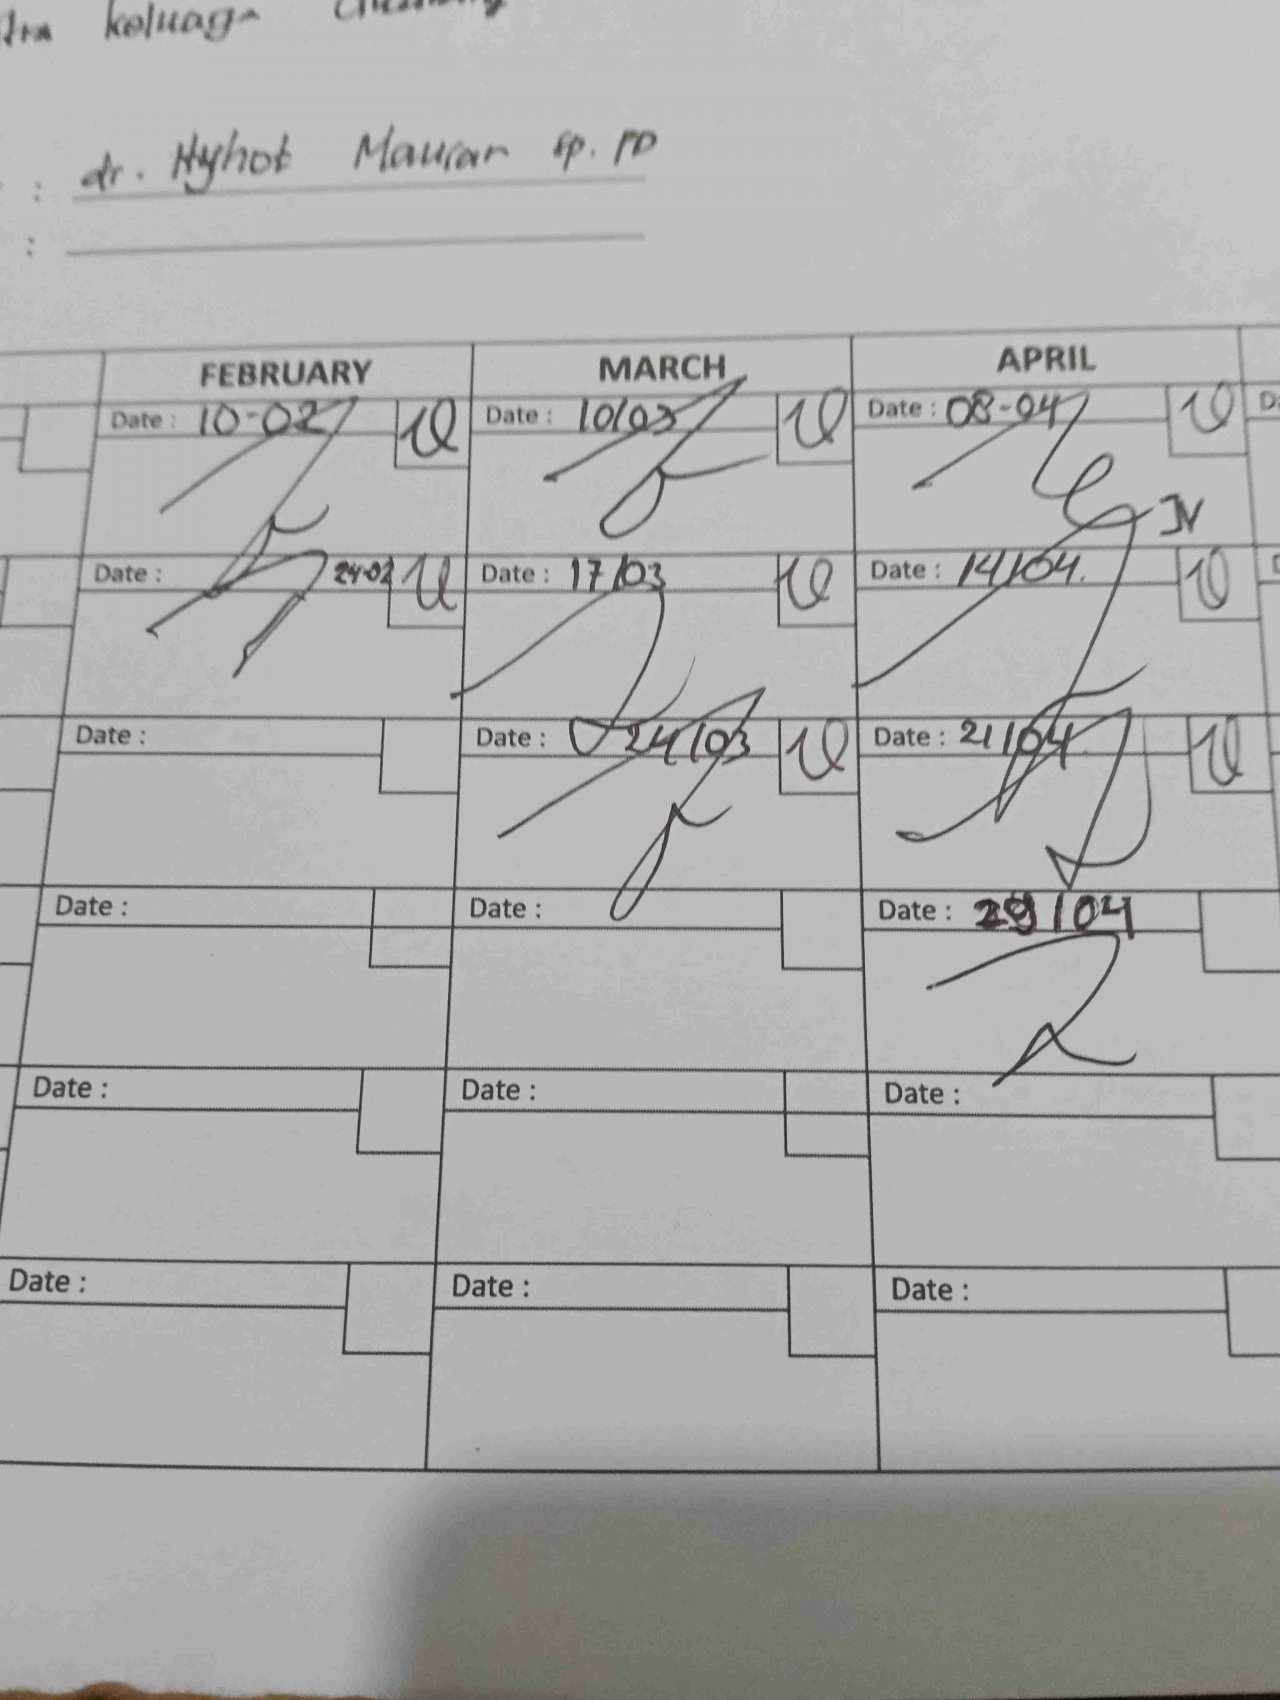 keluaga
: dr. Hyhot Mauran sp. PD
:
FEBRUARY MARCH APRIL
Date : 10-02 Date : 10/03 Date : 08-04
IV
Date : 24-02 Date : 17/03 Date : 14/04.
Date : Date : 24/03 Date : 21/04
Date : Date : Date : 29/04
Date : Date : Date :
Date : Date : Date :